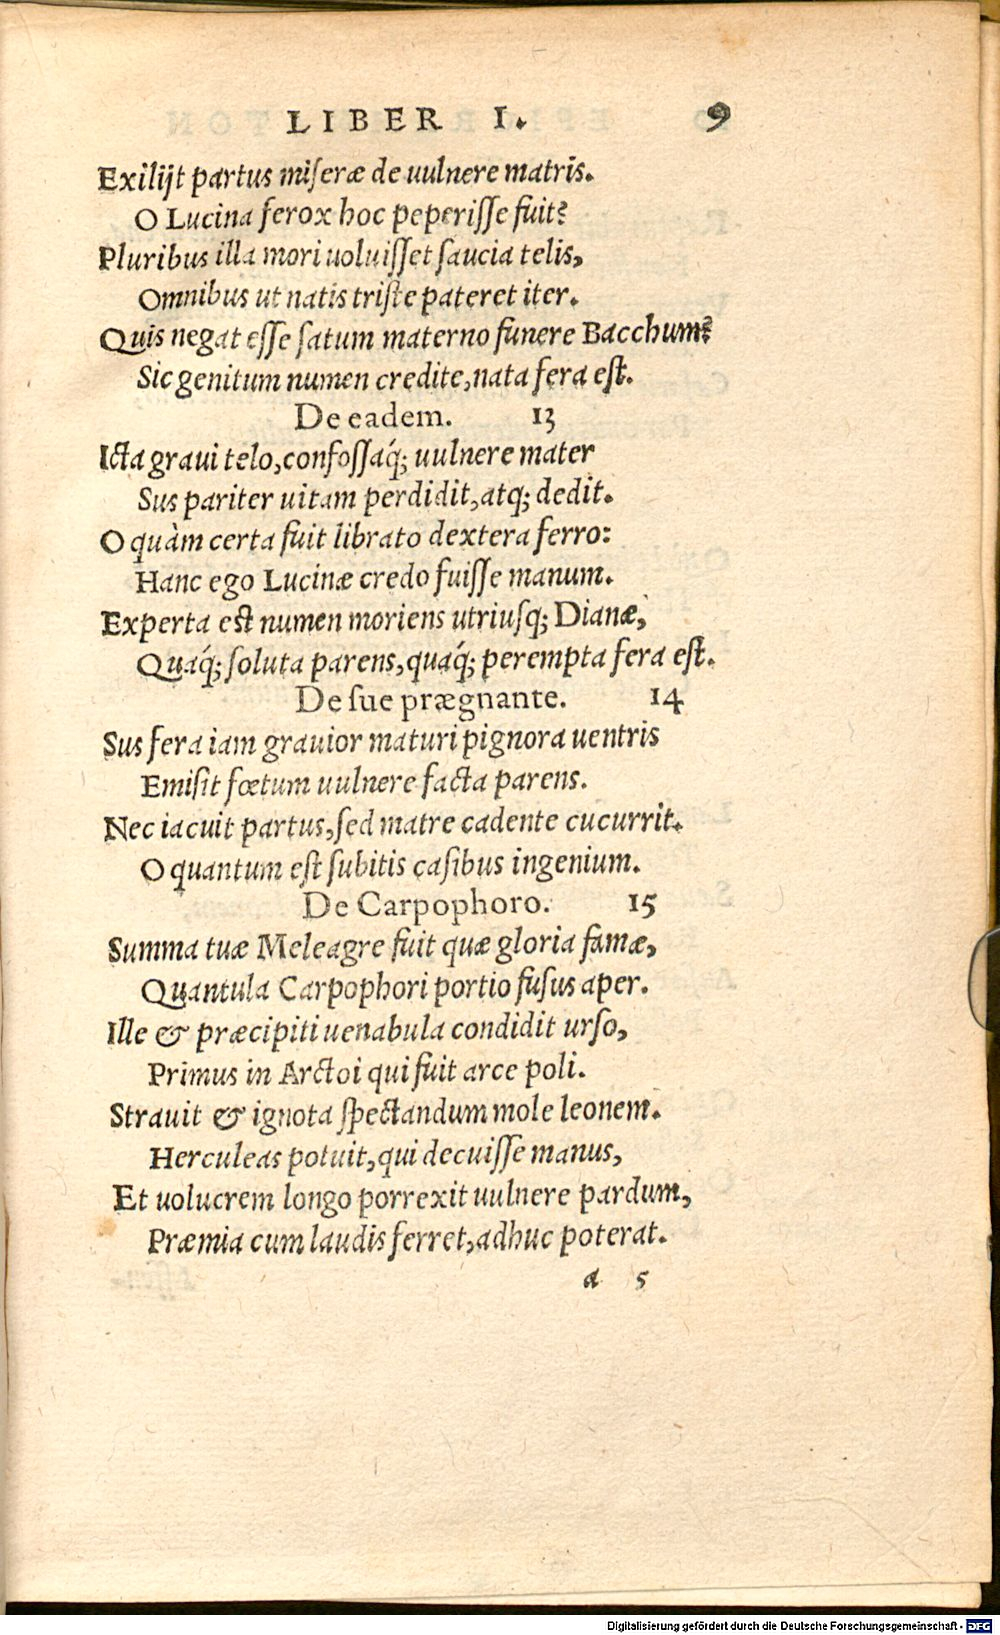 LIBER I. 9
Exilijt partus miseræ de uulnere matris.
O Lucina ferox hoc peperisse fuit?
Pluribus illa mori uoluisset saucia telis,
Omnibus ut natis triste pateret iter.
Quis negat esse satum materno funere Bacchum?
Sic genitum numen credite, nata fera est.
De eadem. 13
Icta graui telo, confossaq́; uulnere mater
Sus pariter uitam perdidit, atq; dedit.
O quàm certa fuit librato dextera ferro:
Hanc ego Lucinæ credo fuisse manum.
Experta est numen moriens utriusq; Dianæ,
Quaq́; soluta parens, quaq́; perempta fera est.
De sue prægnante. 14
Sus fera iam grauior maturi pignora uentris
Emisit fœtum uulnere facta parens.
Nec iacuit partus, sed matre cadente cucurrit.
O quantum est subitis casibus ingenium.
De Carpophoro. 15
Summa tuæ Meleagre fuit quæ gloria famæ,
Quantula Carpophori portio fusus aper.
Ille & præcipiti uenabula condidit urso,
Primus in Arctoi qui fuit arce poli.
Strauit & ignota spectandum mole leonem.
Herculeas potuit, qui decuisse manus,
Et uolucrem longo porrexit uulnere pardum,
Præmia cum laudis ferret, adhuc poterat.
a 5
Digitalisierung gefördert durch die Deutsche Forschungsgemeinschaft - DFG